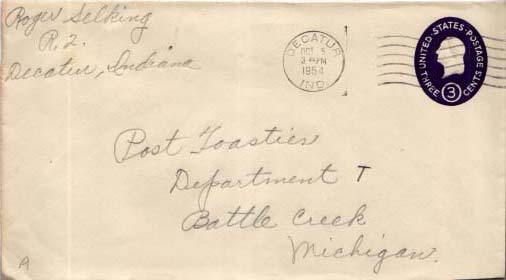 Roger Selking
R. 2.
Decatur, Indiana
DECATUR
OCT 5
3 PM
1954
IND.
UNITED·STATES·POSTAGE
THREE 3 CENTS
Post Toasties
Department T
Battle Creek
Michigan.
A